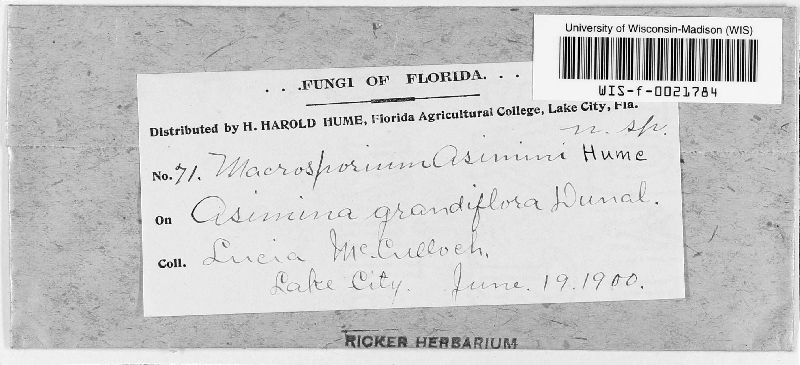 University of Wisconsin-Madison (WIS)
WIS-f-0021784
. . .FUNGI OF FLORIDA. . .
Distributed by H. HAROLD HUME, Florida Agricultural College, Lake City, Fla.
n. sp.
No. 71. Macrosporium Asimini Hume
On Asimina grandiflora Dunal.
Coll. Lucia McCulloch,
Lake City. June. 19. 1900.
RICKER HERBARIUM